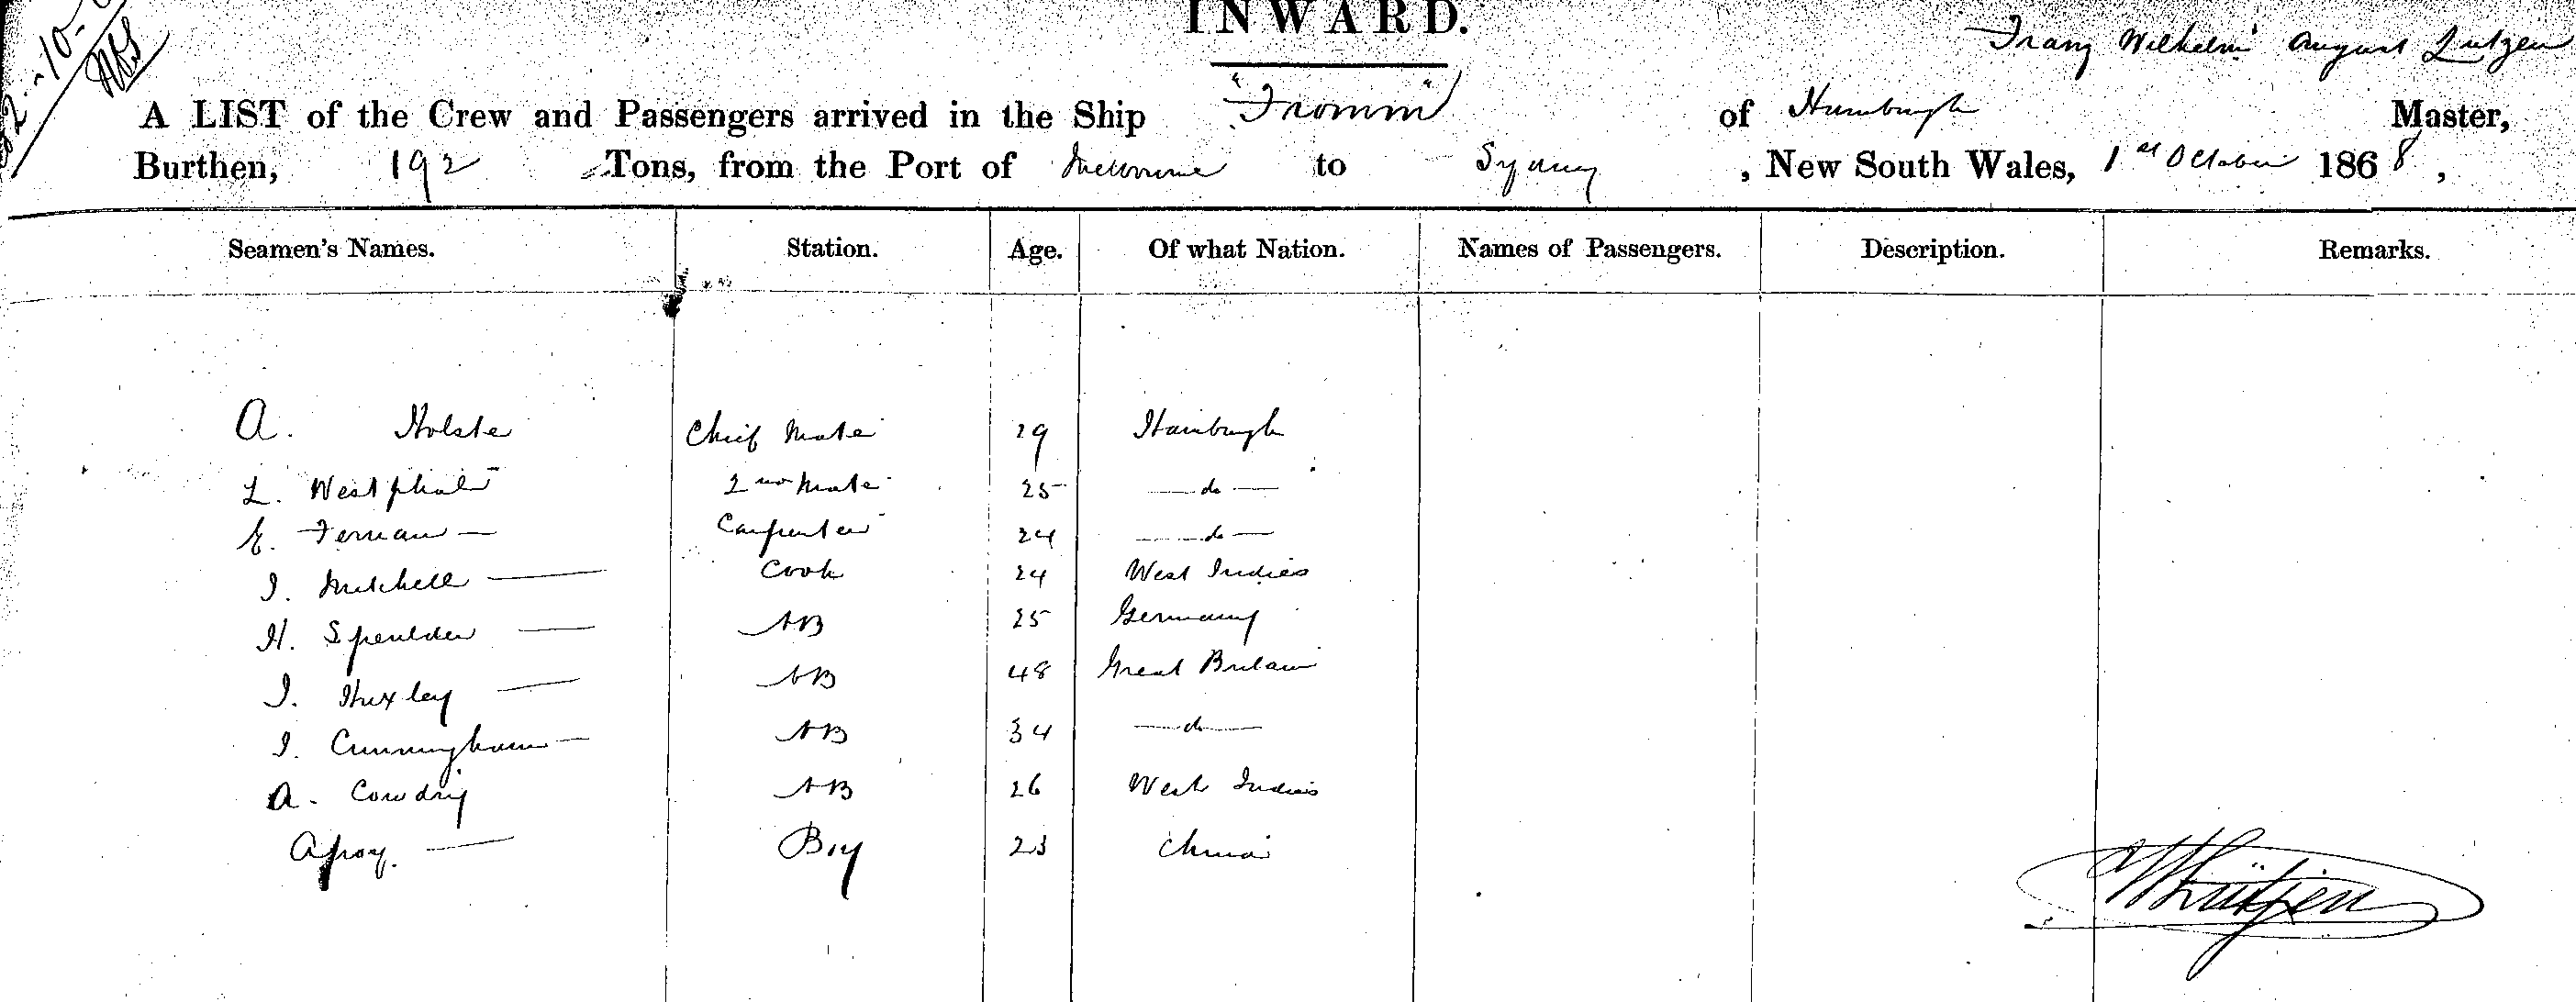 INWARD.
Franz Wilhelm August Lutzen
A LIST of the Crew and Passengers arrived in the Ship "Fromm" of Hamburgh Master,
Burthen, 192 Tons, from the Port of Melbourne to Sydney, New South Wales, 1st October 1868,
Seamen's Names. Station. Age. Of what Nation. Names of Passengers. Description. Remarks.
A. Holste Chief Mate 29 Hamburgh
L. Westphal 2nd Mate 25 — do —
E. Fernau — Carpenter 24 — do —
J. Mitchell — Cook 24 West Indies
H. Speulder — AB 25 Germany
J. Huxley — AB 48 Great Britain
J. Cunningham — AB 34 — do —
A. Cowdry AB 26 West Indies
Apoy. — Boy 23 China